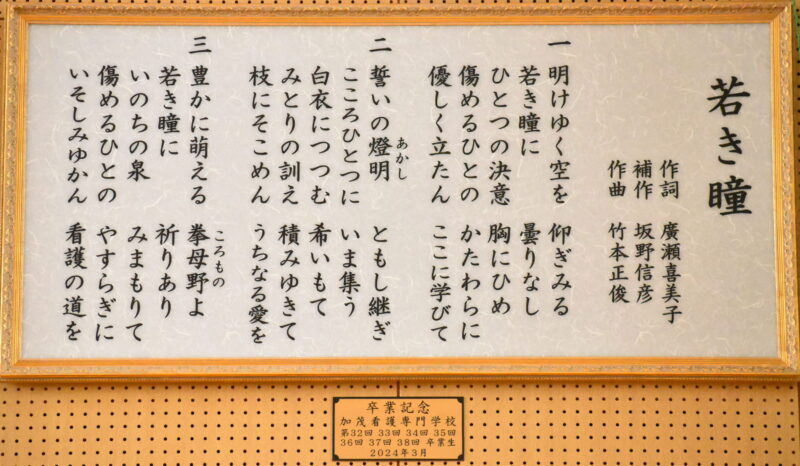 若き瞳
作詞 廣瀬喜美子
補作 坂野信彦
作曲 竹本正俊
一 明けゆく空を 仰ぎみる
若き瞳に 曇りなし
ひとつの決意 胸にひめ
傷めるひとの かたわらに
優しく立たん ここに学びて
二 誓いの燈明 ともし継ぎ
あかし
こころひとつに いま集う
白衣につつむ 希いもて
みとりの訓え 積みゆきて
枝にそこめん うちなる愛を
三 豊かに萌える 拳母野よ
ころもの
若き瞳に 祈りあり
いのちの泉 みまもりて
傷めるひとの やすらぎに
いそしみゆかん 看護の道を
卒業記念
加茂看護専門学校
第32回 33回 34回 35回
36回 37回 38回 卒業生
2024年3月